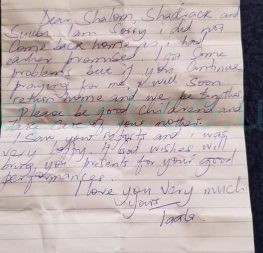 Dear, Shalom, Shadrack and
I am Sorry i did not
Come back home as i have
earlier promised. I got some
problems but if you continue
praying for me, i will soon
return home and we be together
Please be good children and
take care of your mother.
I Saw your reports and i was
very happy. A God wishes will
bring you presents for your good
performances.
I love you very much
yours